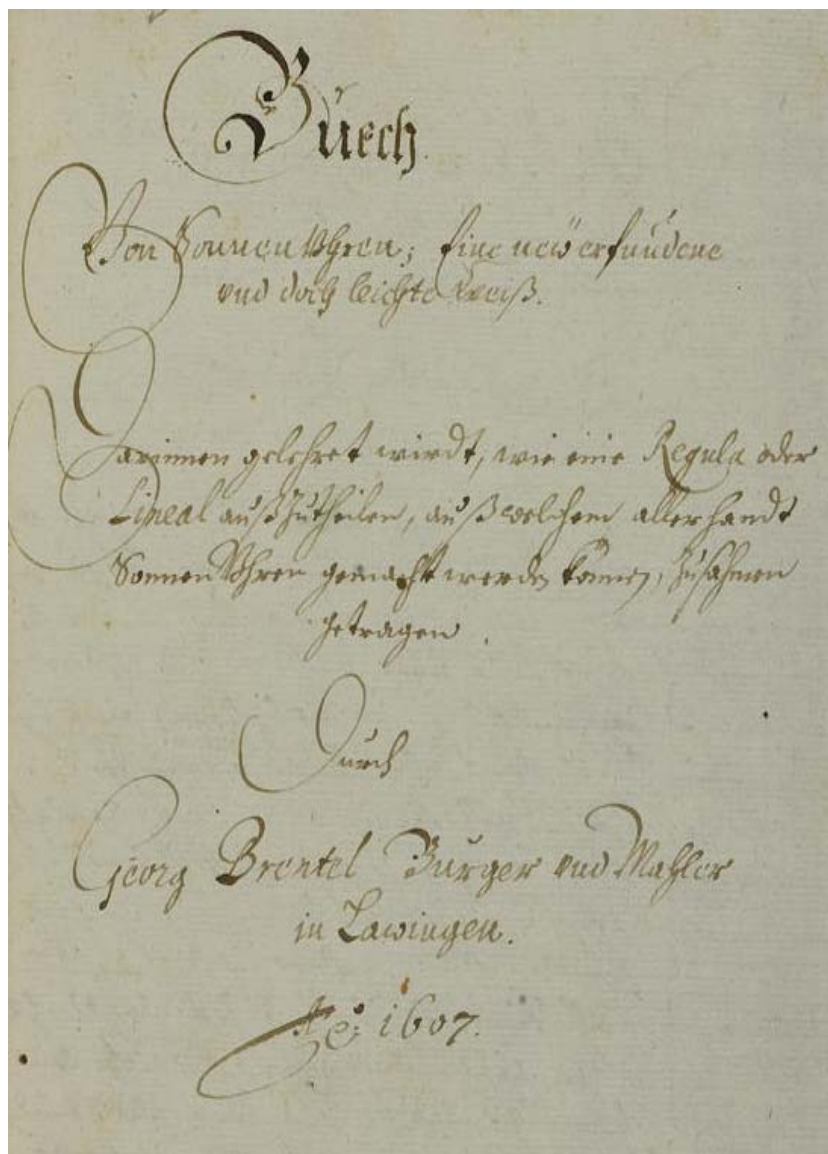 Buech
Von Sonnen Vhren; Eine new erfundene
vnd doch leichte weiß.
Darinnen gelehret wirdt, wie eine Regula oder
Lineal außzutheilen, auß welchem allerhandt
Sonnen Vhren gemacht werden können, zusahmen
getragen.
Durch
Georg Brentel Burger vnd Mahler
in Lawingen.
Ao: 1607.